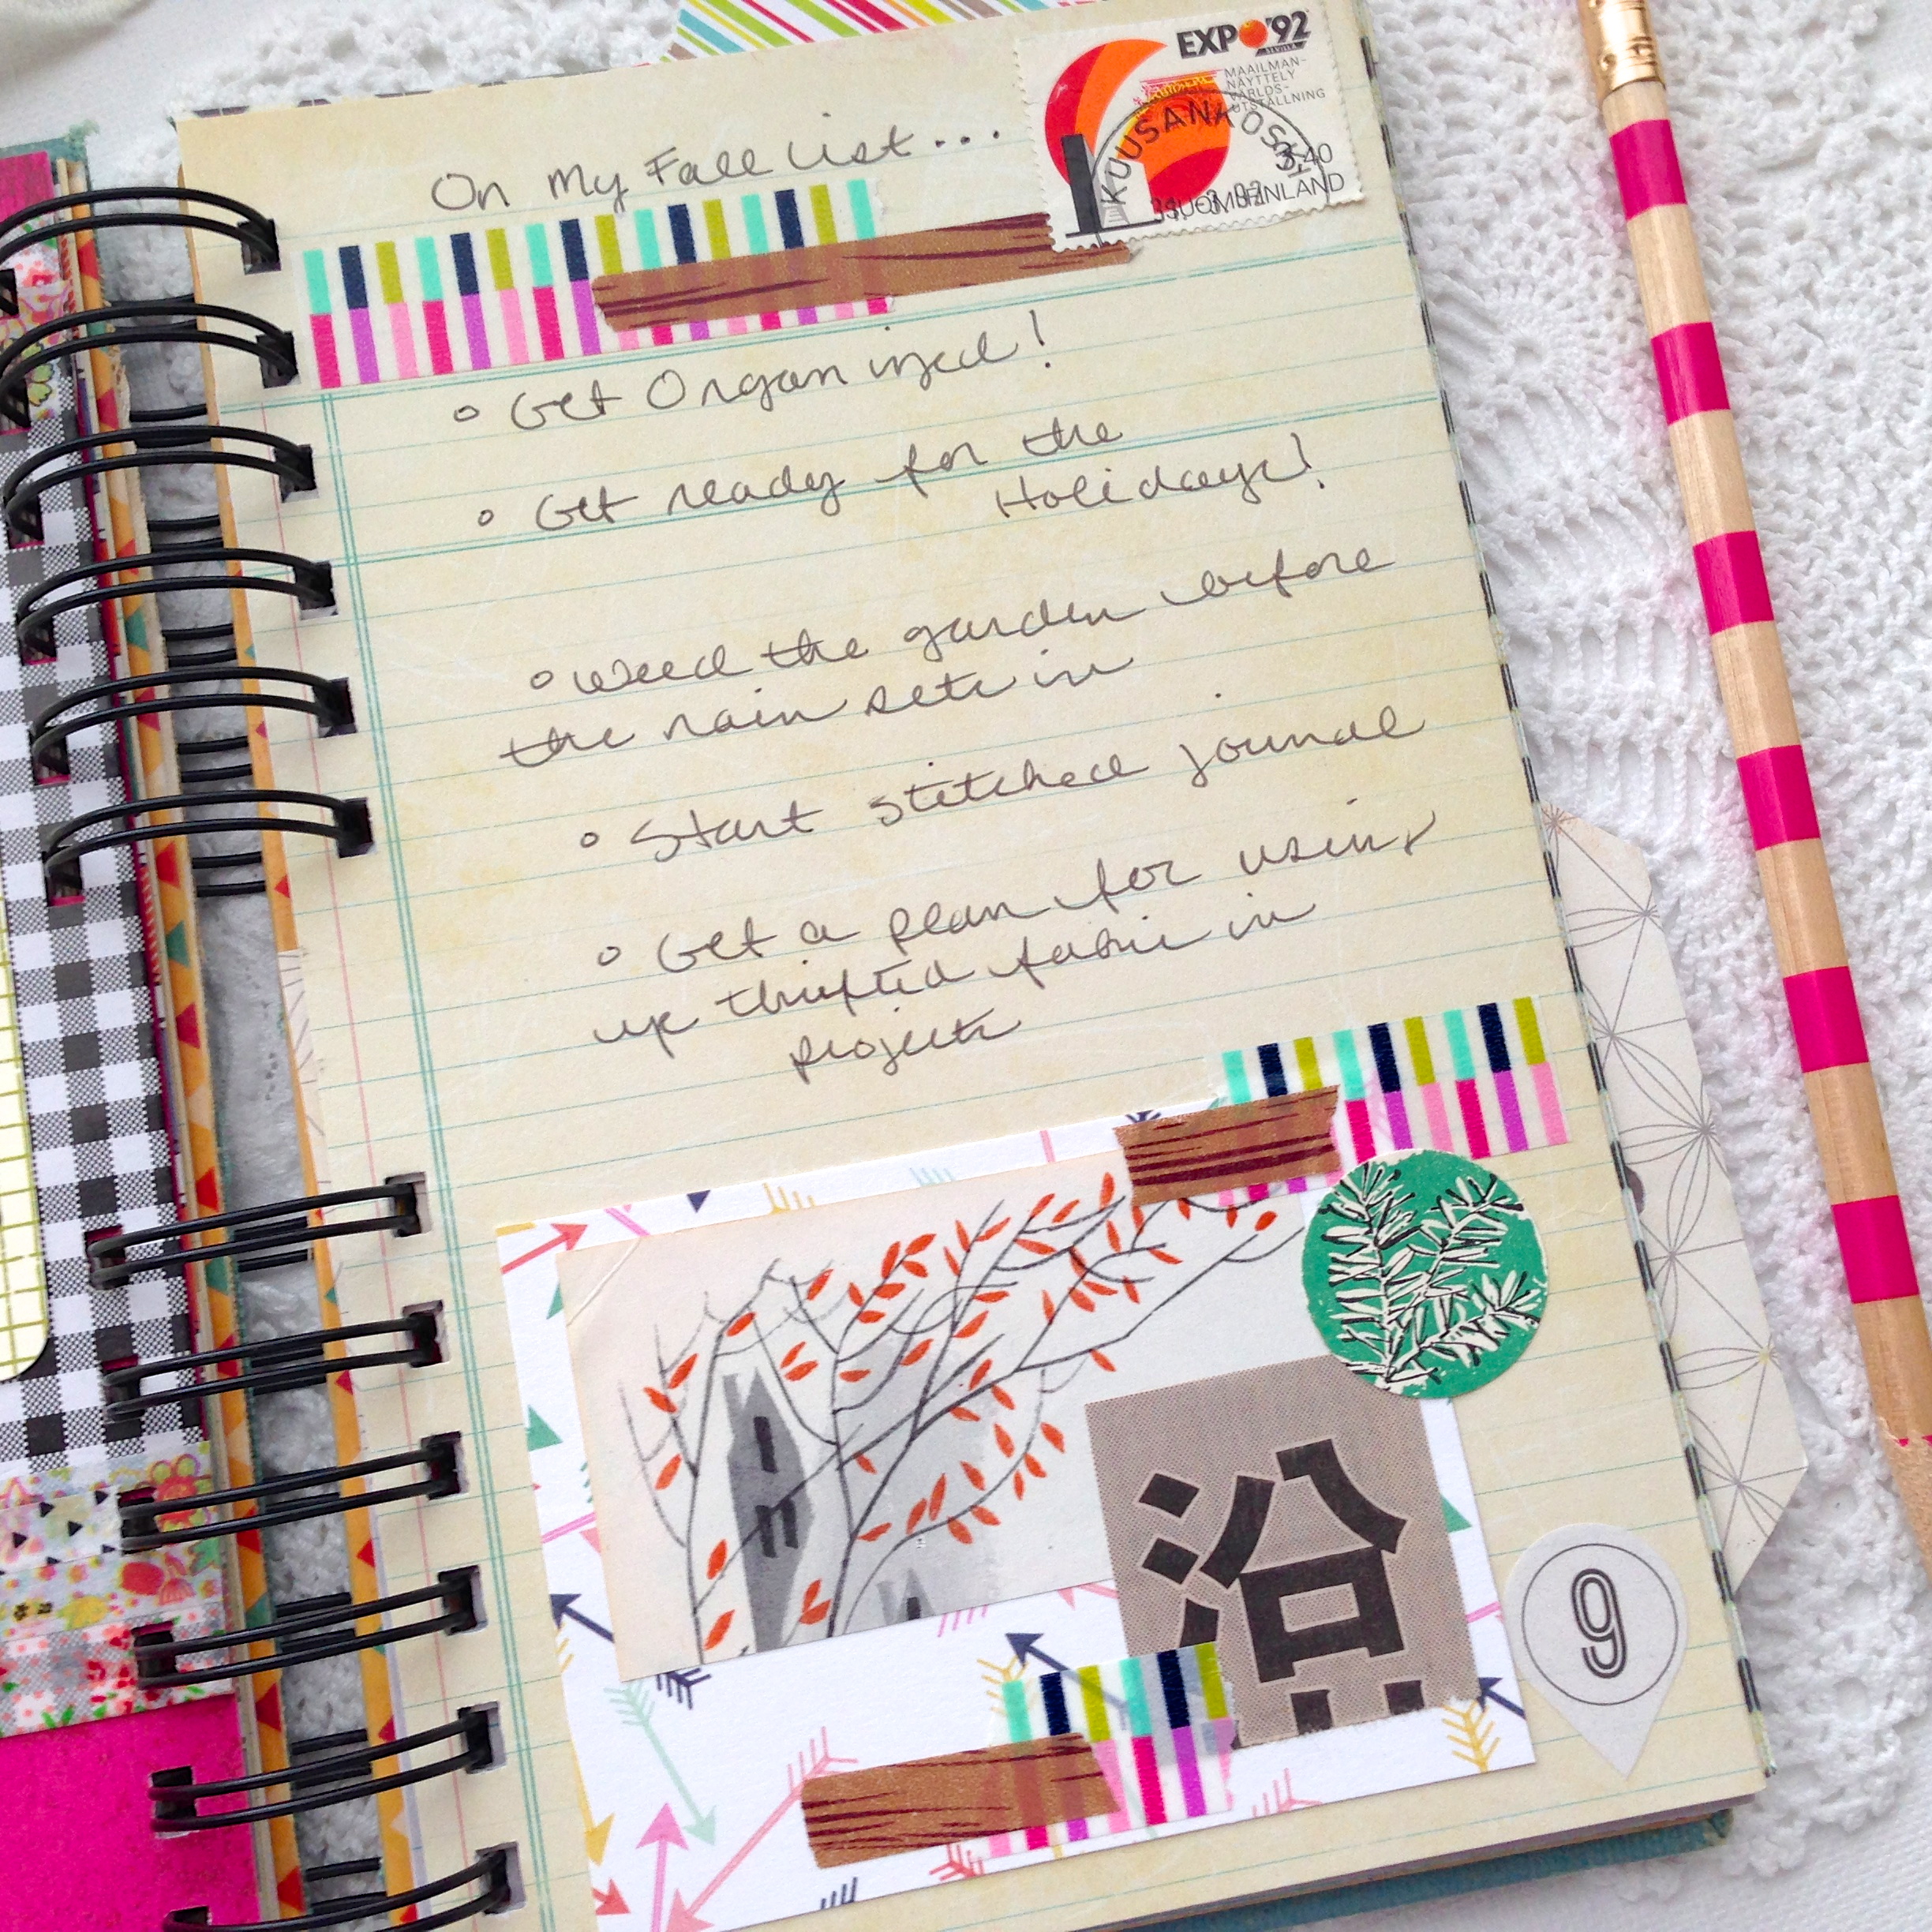 EXPO'92
SEVILLA
MAAILMAN-
NÄYTTELY
VÄRLDS-
UTSTÄLLNING
KUUSANKOSKI
3,40
SUOMI FINLAND
On My Fall List...
o Get Organized!
o Get ready for the
Holidays!
o weed the garden before
the rain sets in
o Start stitched journal
o Get a plan for using
up thrifted fabric in
projects
沿
9